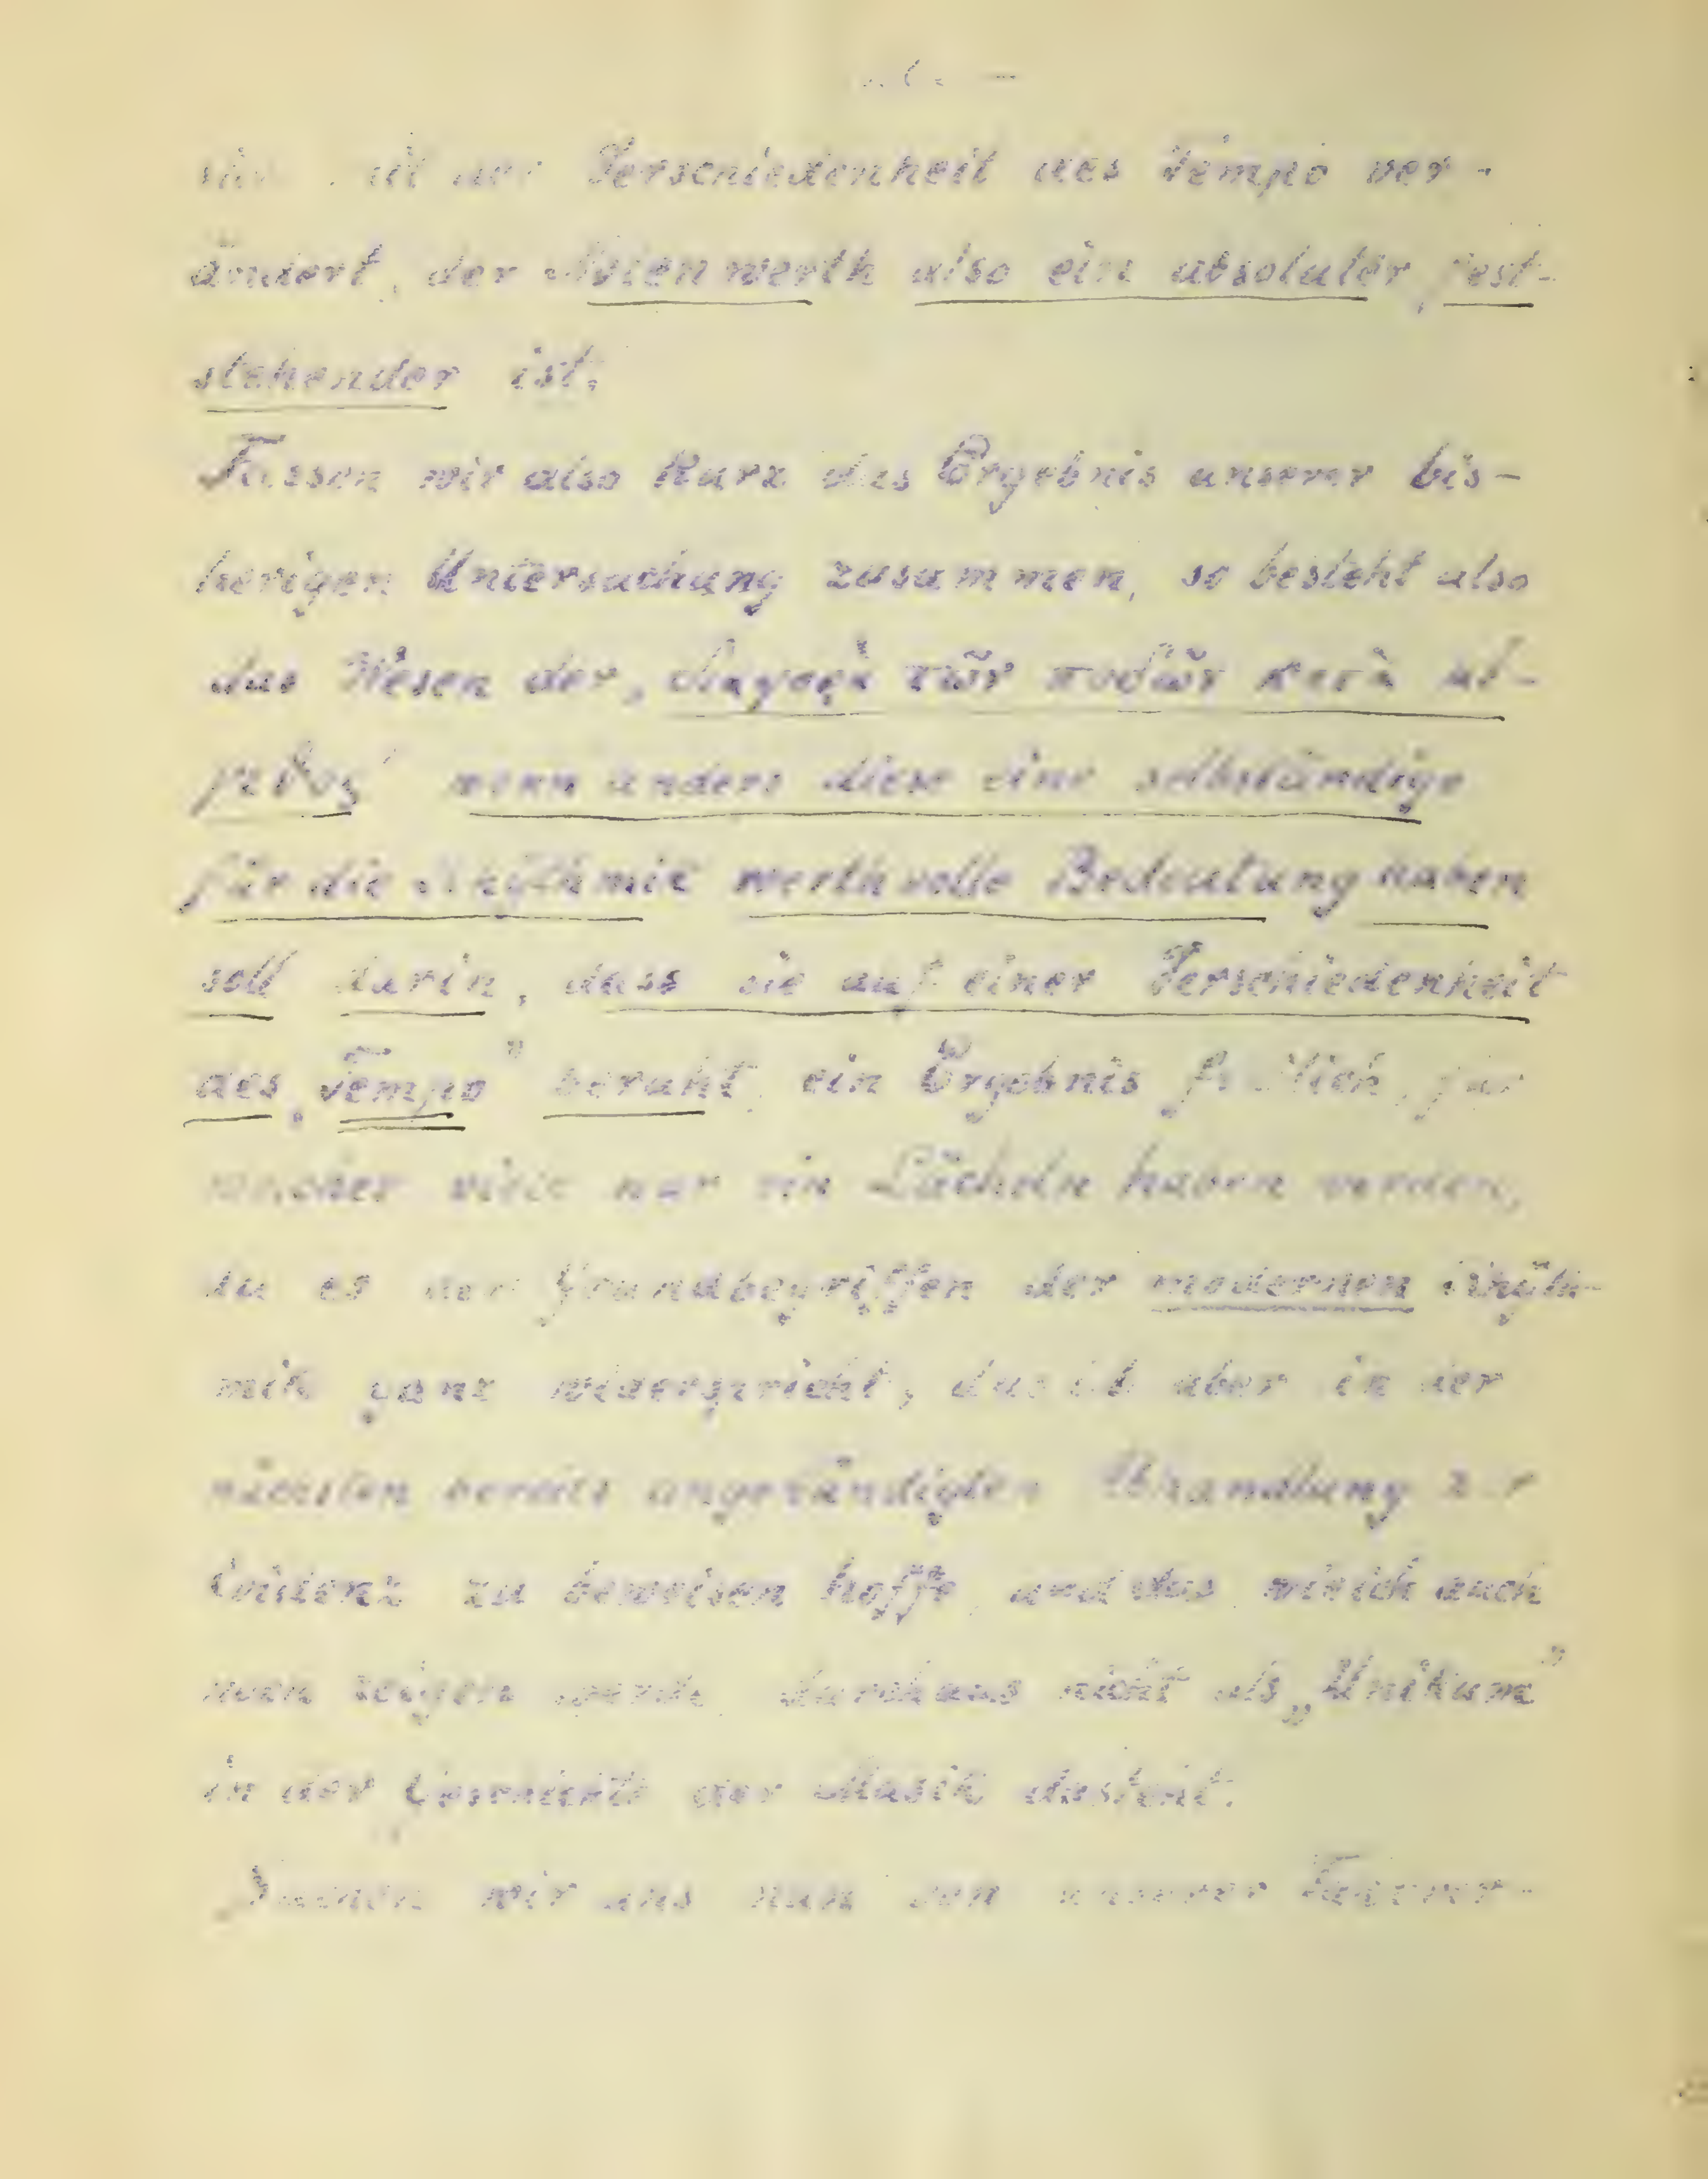 mit der Verschiedenheit des Tempo ver-
ändert, der Notenwerth also ein absoluter, fest-
stehender ist.
Fassen wir also kurz das Ergebnis unserer bis-
herigen Untersuchung zusammen, so besteht also
das Wesen der „διαφορὰ τῶν ποδῶν κατὰ μέ-
γεθος“ wenn anders diese eine selbständige
für die Rhythmik werthvolle Bedeutung haben
soll darin, dass sie auf einer Verschiedenheit
des „Tempo“ beruht, ein Ergebnis freilich, für
welches viele nur ein Lächeln haben werden,
da es den Grundbegriffen der modernen Rhyth-
mik ganz widerspricht, das ich aber in der
nächsten bereits angekündigten Abhandlung zur
Evidenz zu beweisen hoffe, und das, wie ich auch
zeigen werde, durchaus nicht als „Unikum“
in der Geschichte der Musik dasteht.
wir uns nun von unserer